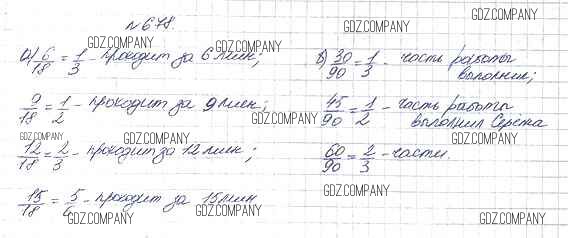 № 678.
GDZ.COMPANY
GDZ.COMPANY
GDZ.COMPANY
а) 6/18 = 1/3 - проходит за 6 мин;
GDZ.COMPANY
9/18 = 1/2 - проходит за 9 мин;
GDZ.COMPANY
12/18 = 2/3 - проходит за 12 мин;
15/18 = 5/6 - проходит за 15 мин
GDZ.COMPANY
GDZ.COMPANY
в) 30/90 = 1/3 - часть работы
выполнил;
GDZ.COMPANY
45/90 = 1/2 - часть работы
GDZ.COMPANY
выполнил Серёжа
GDZ.COMPANY
60/90 = 2/3 - части.
GDZ.COMPANY
GDZ.COMPANY